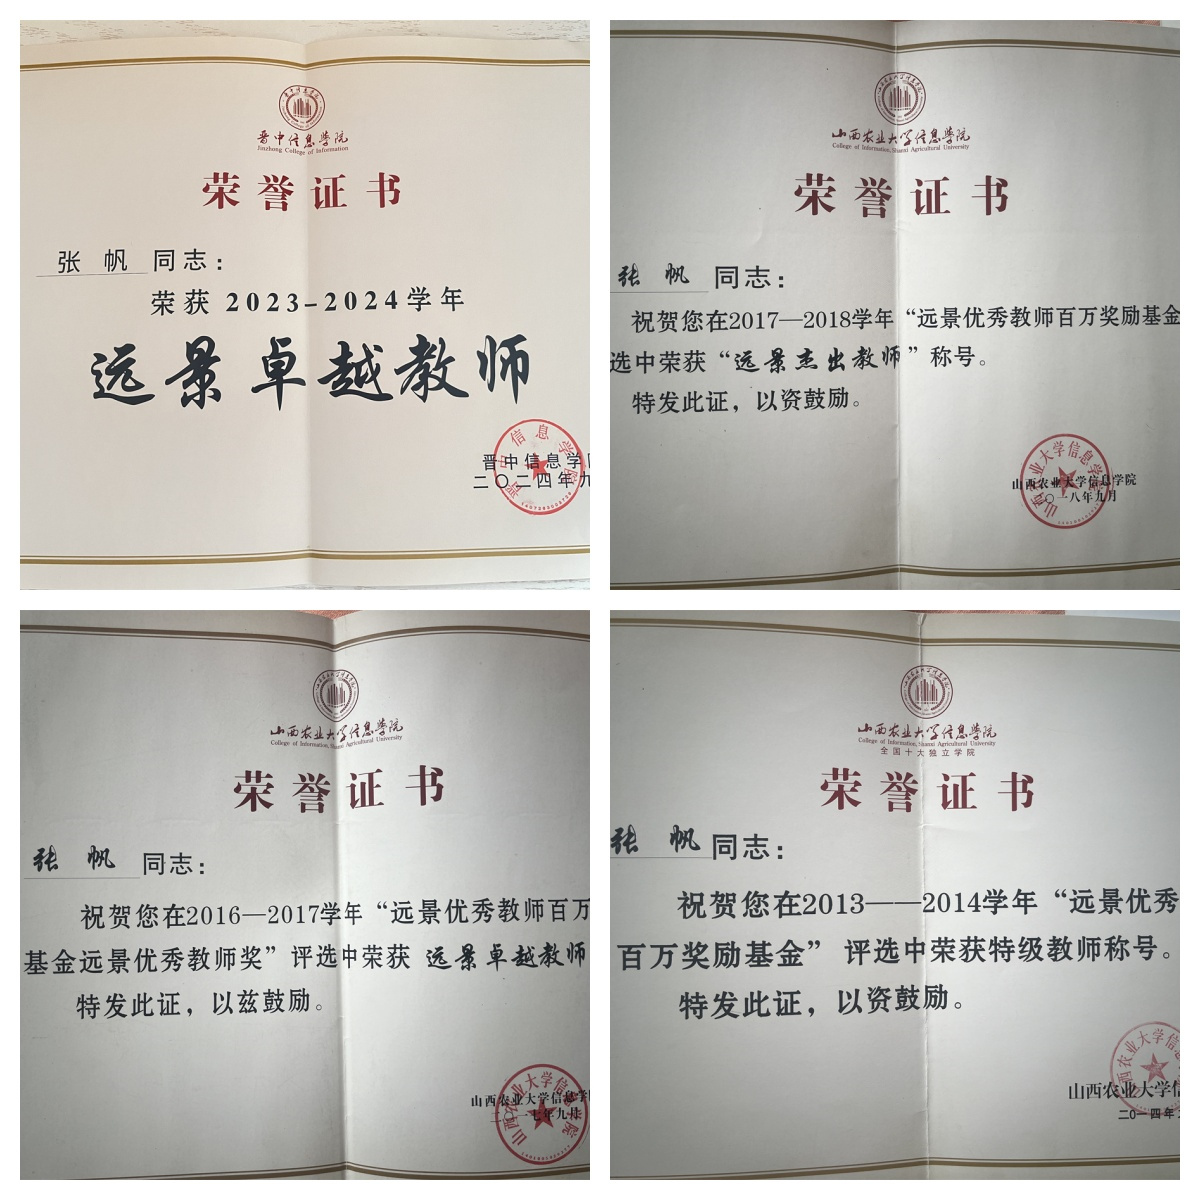 晋中信息学院
Jinzhong College of Information
荣誉证书
张 帆 同志：
荣获 2023-2024学年
远景卓越教师
晋中信息学
二〇二四年九
山西农业大学信息学院
College of Information, Shanxi Agricultural University
荣誉证书
张 帆 同志：
祝贺您在2017—2018学年“远景优秀教师百万奖励基金
选中荣获“远景杰出教师”称号。
特发此证，以资鼓励。
山西农业大学信息学院
〇一八年九月
山西农业大学信息学院
College of Information, Shanxi Agricultural University
荣誉证书
张 帆 同志：
祝贺您在2016—2017学年“远景优秀教师百万
基金远景优秀教师奖”评选中荣获 远景卓越教师
特发此证，以兹鼓励。
山西农业大学信息学
二〇一七年九月
山西农业大学信息学院
College of Information, Shanxi Agricultural University
全国十大独立学院
荣誉证书
张 帆 同志：
祝贺您在2013——2014学年“远景优秀
百万奖励基金”评选中荣获特级教师称号。
特发此证，以资鼓励。
山西农业大学信
二〇一四年